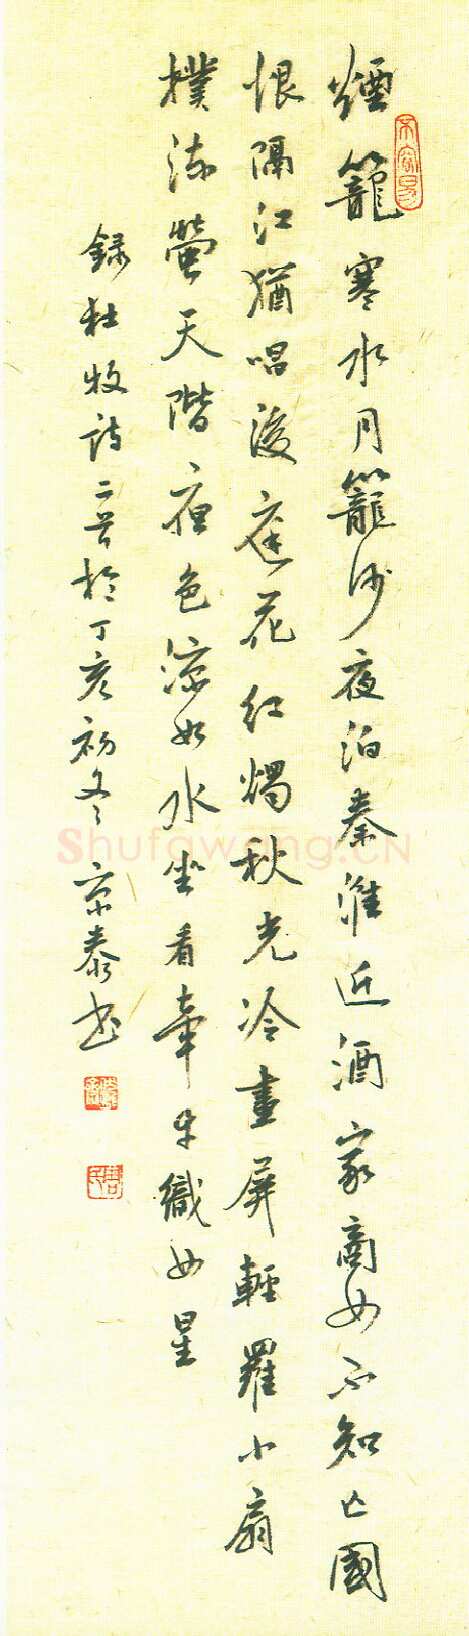 煙籠寒水月籠沙夜泊秦淮近酒家商女不知亡國
恨隔江猶唱後庭花紅燭秋光冷畫屏輕羅小扇
撲流螢天階夜色涼如水坐看牽牛織女星
錄杜牧詩二首於丁亥初冬京泰書
Shufawang.CN